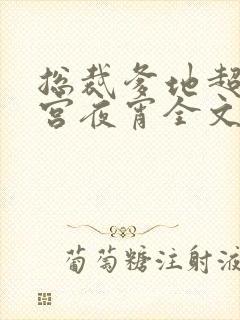 总裁爹地超
宫夜宵全文
葡萄糖注射液